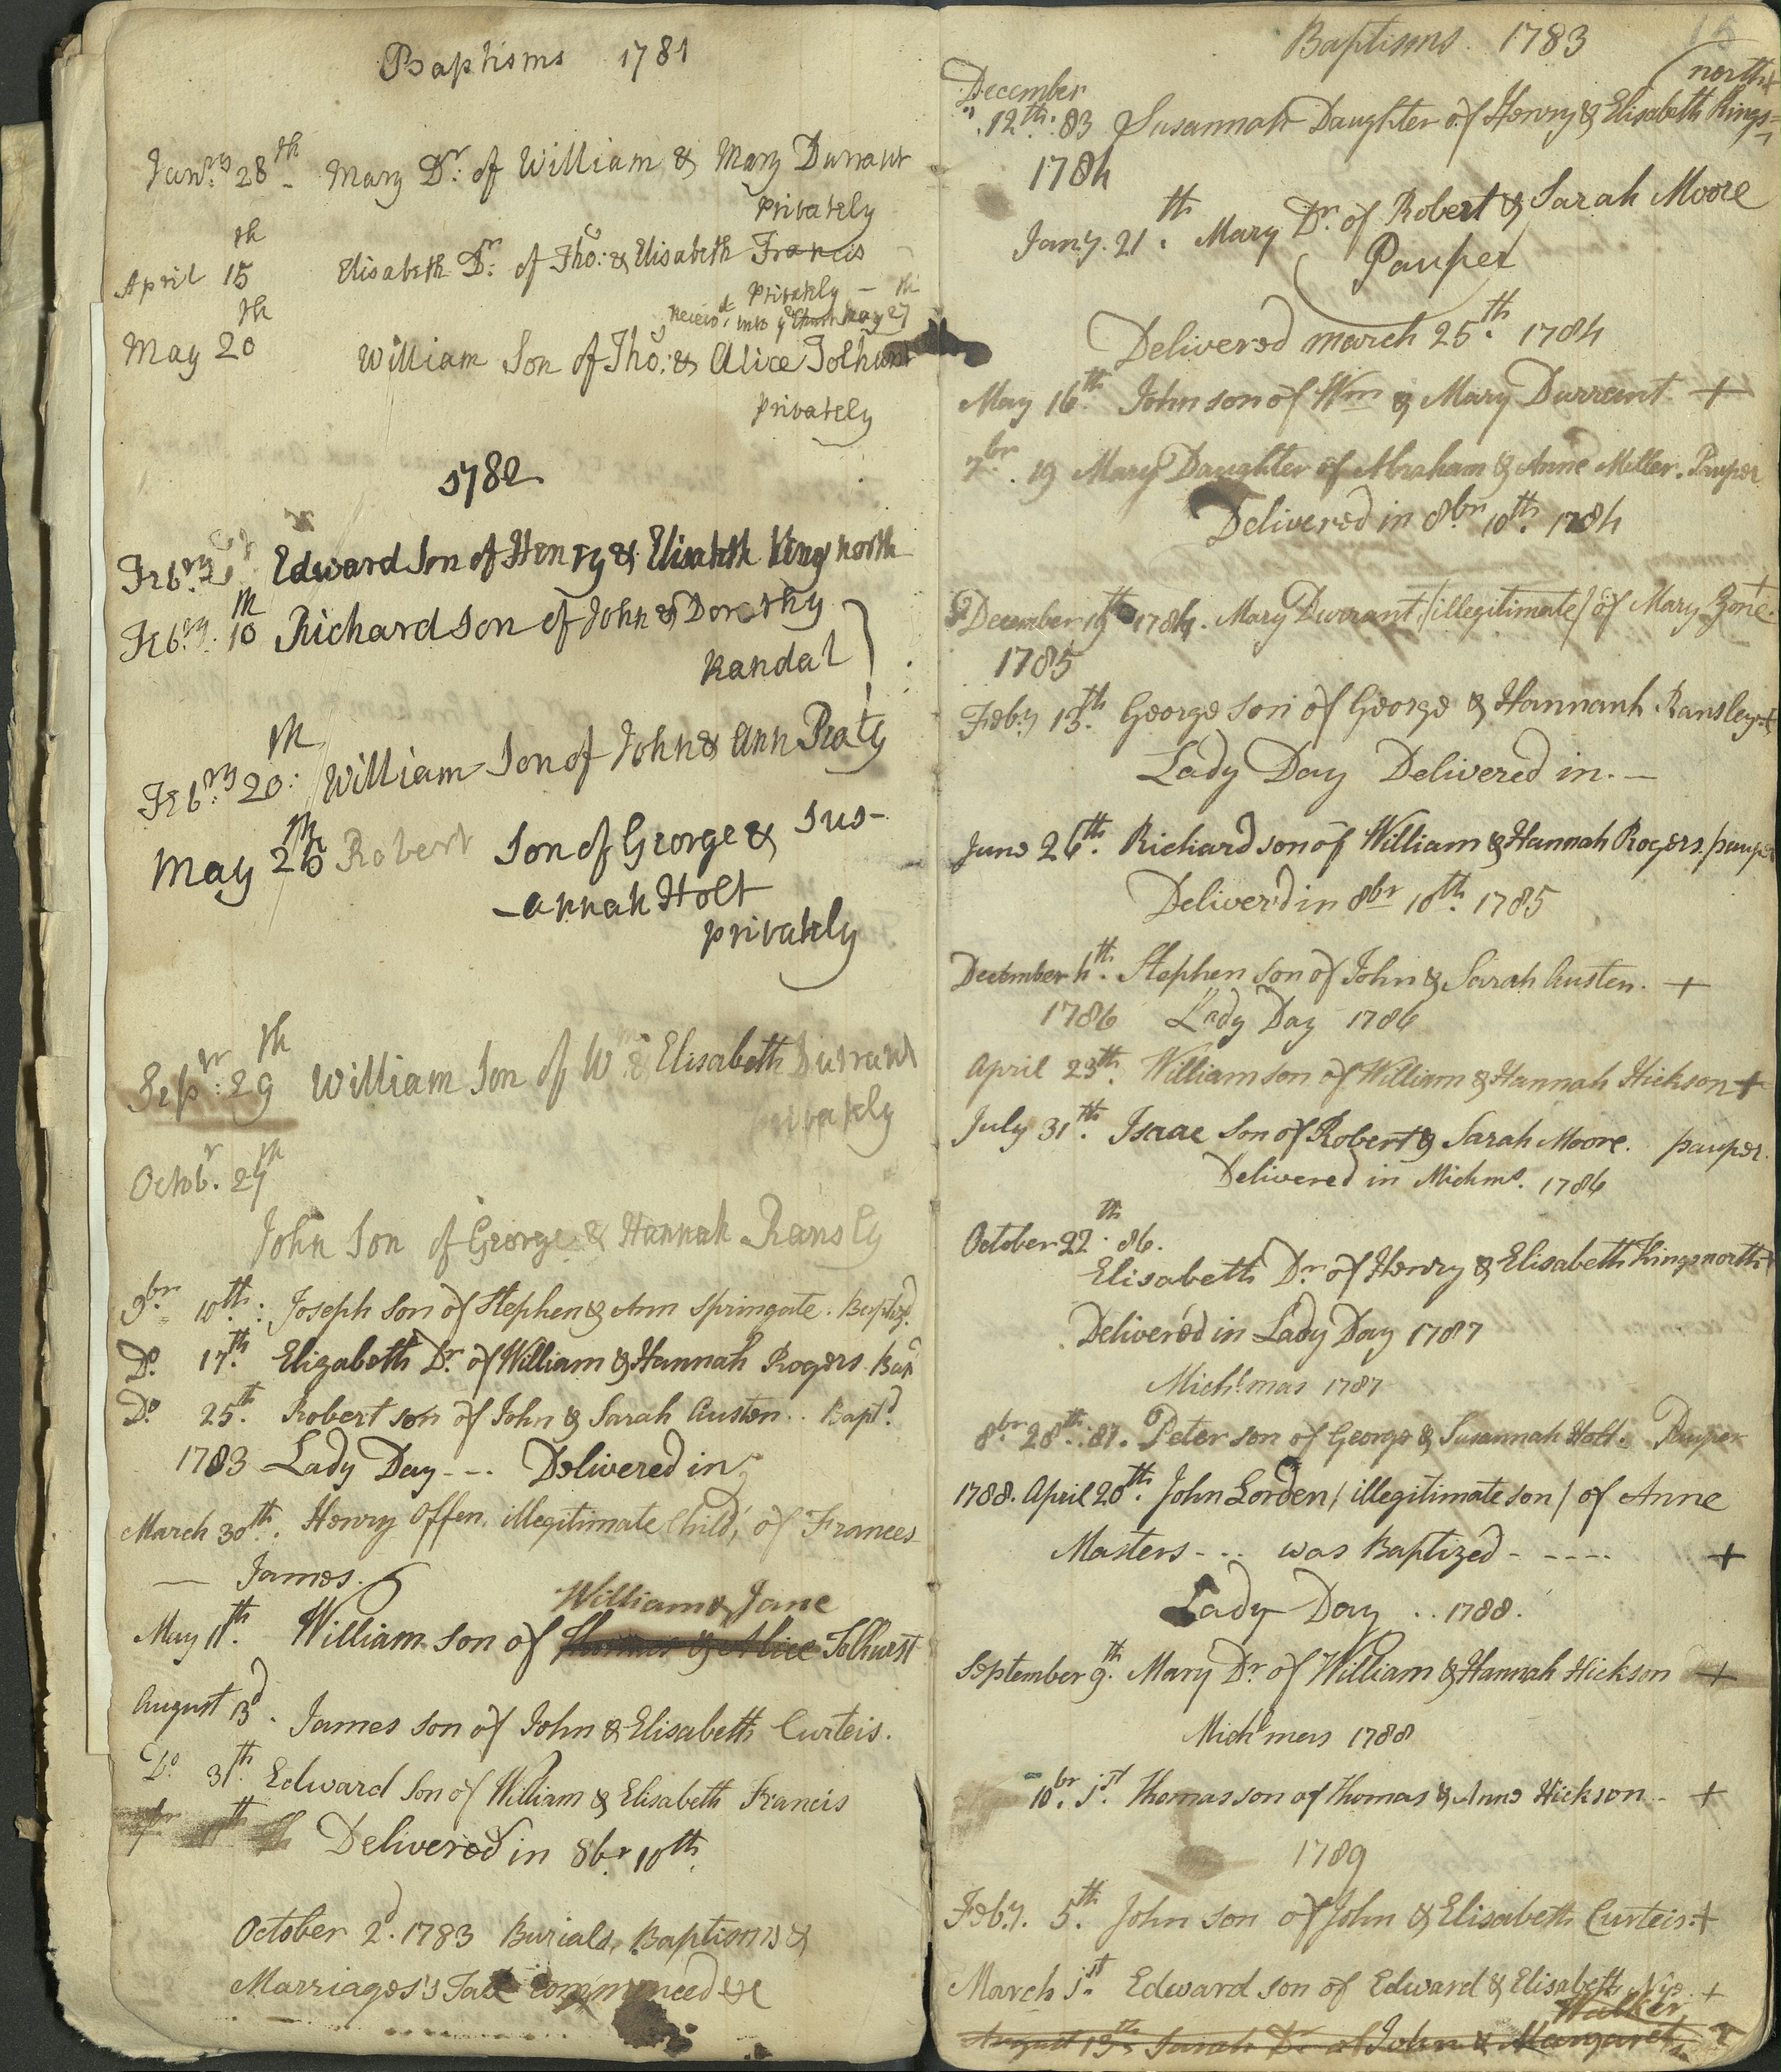 Baptisms 1781
Janry 28th Mary Dr: of William & Mary Durrant
Privately
April 15th Elisabeth Dr: of Tho: & Elisabeth Francis
Privately
Receiv'd into ye Church May 27th
May 20th William Son of Tho: & Alice Tolhurst
privately
1782
Febry Edward Son of Henry & Elisabeth Kingsnorth
Febry. 10th Richard Son of John & Dorothy
Randal
Febry 20th: William Son of John & Ann Praty
May 26th Robert Son of George & Sus-
-annah Holt
privately
Sepr: 29th William Son of Wm & Elisabeth Durrant
privately
Octobr. 27th
John Son of George & Hannah Ransly
9br 10th: Joseph Son of Stephen & Ann Springate. Baptizd.
Do. 17th. Elizabeth Dr. of William & Hannah Rogers Bapd
Do. 25th. Robert son of John & Sarah Austen.. Baptd.
1783 Lady Day - - - Delivered in
March 30th. Henry Offen, illegitimate Child, of Frances
— James.
William & Jane
May 11th. William son of Thomas & Alice Tolhurst
August 13d. James son of John & Elisabeth Curteis.
Do. 31th. Edward Son of William & Elisabeth Francis
Delivered in 8br 10th.
October 2d. 1783 Burials, Baptisms &
Marriages's Tax commenced &c
Baptisms. 1783
15
north+
December
12th. 83 Susannah Daughter of Henry & Elisabeth Kings=
1784
Jany. 21th. Mary Dr. of Robert & Sarah Moore
Pauper
Delivered march 25th. 1784
May 16th. John son of Wm & Mary Durrant +
7br. 19 Mary Daughter of Abraham & Anne Miller. Pauper
Delivered in 8br 10th. 1784
December 19th 1784. Mary Durrant /illegitimate/ of Mary Gone. +
1785
Feby 13th. George son of George & Hannanh Ransley +
Lady Day Delivered in. —
June 26th. Richard son of William & Hannah Rogers. /pauper
Deliver'd in 8br 10th. 1785
December 4th. Stephen son of John & Sarah Austen. +
1786 Lady Day 1786
April 23th. William son of William & Hannah Hickson +
July 31th. Isaac Son of Robert & Sarah Moore. pauper.
Delivered in Michms. 1786
October 22th. 86.
Elisabeth Dr. of Henry & Elisabeth Kingsnorth +
Deliver'd in Lady Day 1787
Michlmas 1787
8br 28th. 87. Peter son of George & Susannah Holt. Pauper
1788. April 20th. John Lorden / illegitimate son / of Anne
Masters - - - was Baptized - - - - - +
Lady Day .. 1788.
September 9th. Mary Dr. of William & Hannah Hickson +
Michlmas 1788
10br. 1st. Thomas son of Thomas & Anne Hickson - +
1789
Feby. 5th. John son of John & Elisabeth Curteis. +
March 1st. Edward son of Edward & Elisabeth Nye. +
Walker
August 19th, Sarah Dr. of John & Margaret